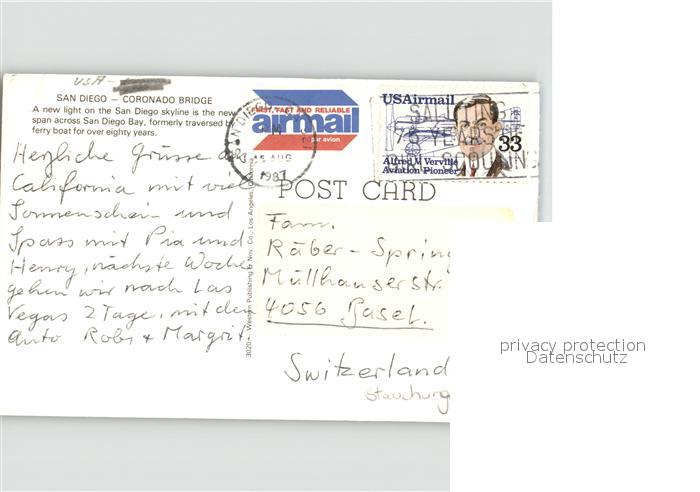 USA-
SAN DIEGO — CORONADO BRIDGE
A new light on the San Diego skyline is the new
span across San Diego Bay, formerly traversed by
ferry boat for over eighty years.
FIRST, FAST AND RELIABLE
airmail
par avion
DIEGO
15 AUG
1987
USAirmail
33
Alfred V. Verville
Aviation Pioneer
75 YEARS OF
POST CARD
Herzliche Grüsse aus
California mit viel
Sonnenschein und
Spass mit Pia und
Henry, nächste Woche
gehen wir nach Las
Vegas 2 Tage, mit dem
Auto Robs + Margrit
3020 - Western Publishing & Nov. Co., Los Angeles
Fam.
Räber - Spring
Müllhauserstr.
4056 Basel.
Switzerland
privacy protection
Datenschutz